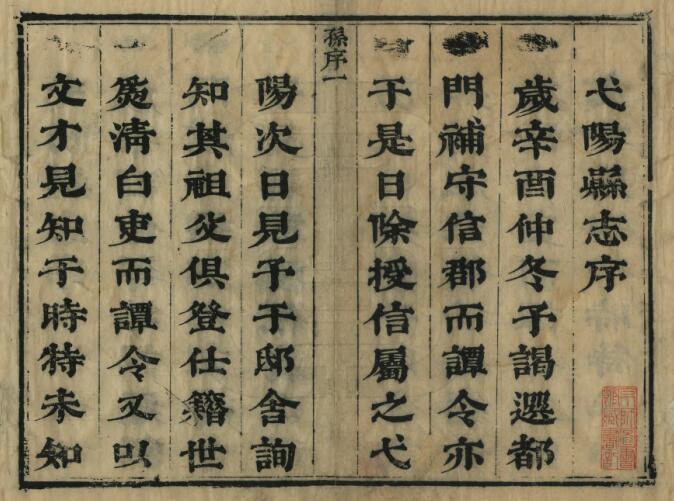 弋陽縣志序
歲辛酉仲冬予謁選都
門補守信郡而譚令亦
于是日除授信屬之弋
孫序一
陽次日見予于邸舍詢
知其祖父俱登仕籍世
爲清白吏而譚令又以
文才見知于時特未知